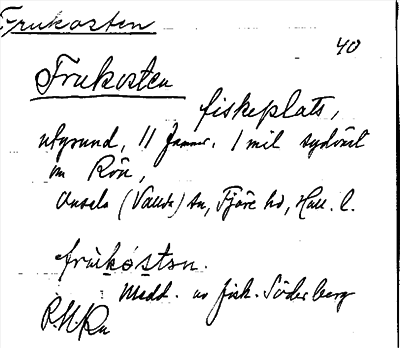 Frukosten
40
Frukosten
fiskeplats,
utgrund, 11 famnar. 1 mil sydväst
om Rön,
Onsala (Valida) sn, Fjäre hd, Hall. l.
frùkóstən.
Medd. av fisk. Söderberg